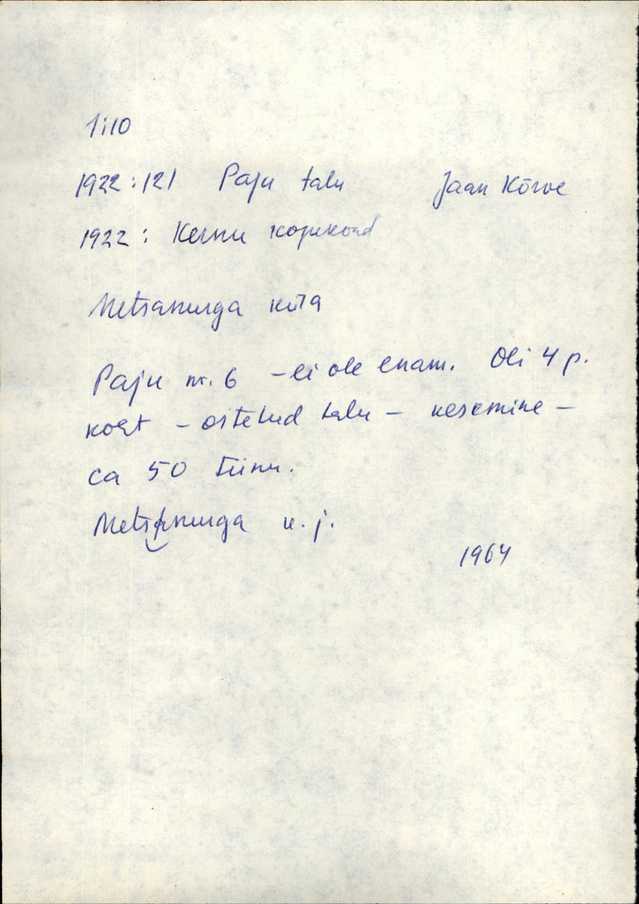 1:10
1922:121 Paju talu Jaan Kõrve
1922: Kernu kogukond
Metsanurga küla
Paju nr. 6 – ei ole enam. Oli 4 p.
koht – ostetud talu – keskmine –
ca 50 tiinu.
Metsanurga k. j.
1964